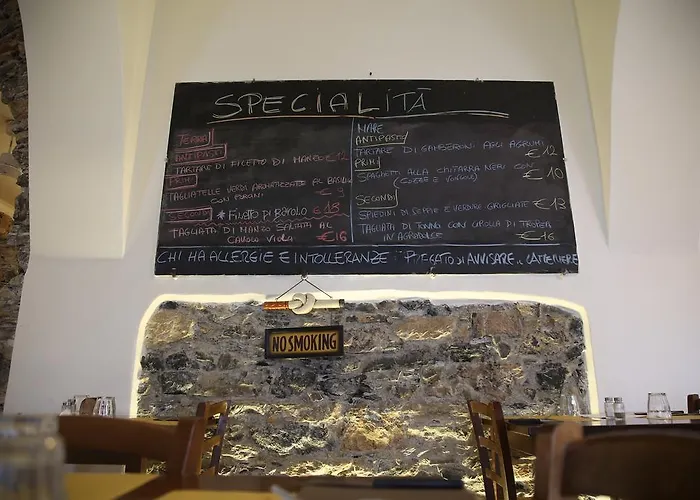 SPECIALITÀ
TERRA
ANTIPASTI
TARTARE DI FILETTO DI MANZO €12
PRIMI
TAGLIATELLE VERDI AROMATIZZATE AL BASILICO
CON €9
SECONDI * FILETTO DI BAROLO €18
TAGLIATA DI MANZO SALTATA AL
CAVOLO VIOLA €16
MARE
ANTIPASTI
TARTARE DI GAMBERONI AGLI AGRUMI €12
PRIMI
SPAGHETTI ALLA CHITARRA NERI CON
(COZZE E VONGOLE) €10
SECONDI
SPIEDINI DI SEPPIE E VERDURE GRIGLIATE €13
TAGLIATA DI TONNO CON CIPOLLA DI TROPEA
IN AGRODOLCE €16
CHI HA ALLERGIE E INTOLLERANZE È PREGATO DI AVVISARE IL CAMERIERE
NO SMOKING